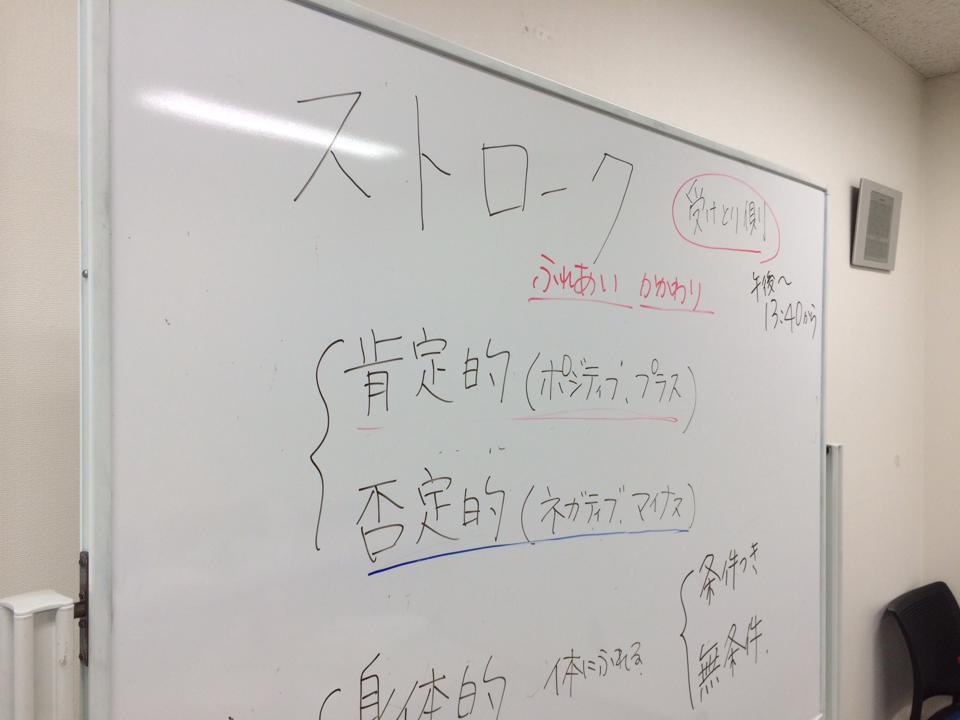 ストローク
受けとり側
ふれあい かかわり
午後〜
13:40から
肯定的(ポジティブ、プラス)
否定的(ネガティブ、マイナス)
条件つき
無条件.
身体的 体にふれる